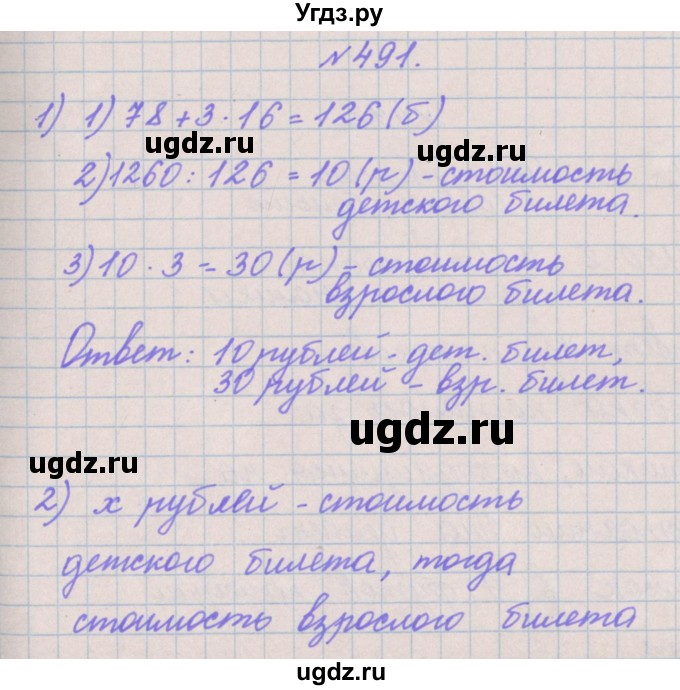 Угдз.ру
№491.
1) 1) 78 + 3 · 16 = 126 (б)
ugdz.ru ugdz.ru
2) 1260 : 126 = 10 (р) - стоимость
детского билета.
ugdz.ru
3) 10 · 3 = 30 (р) - стоимость
взрослого билета.
Ответ: 10 рублей - дет. билет,
30 рублей - взр. билет.
ugdz.ru
ugdz.ru
2) х рублей - стоимость
детского билета, тогда
стоимость взрослого билета
ugdz.ru